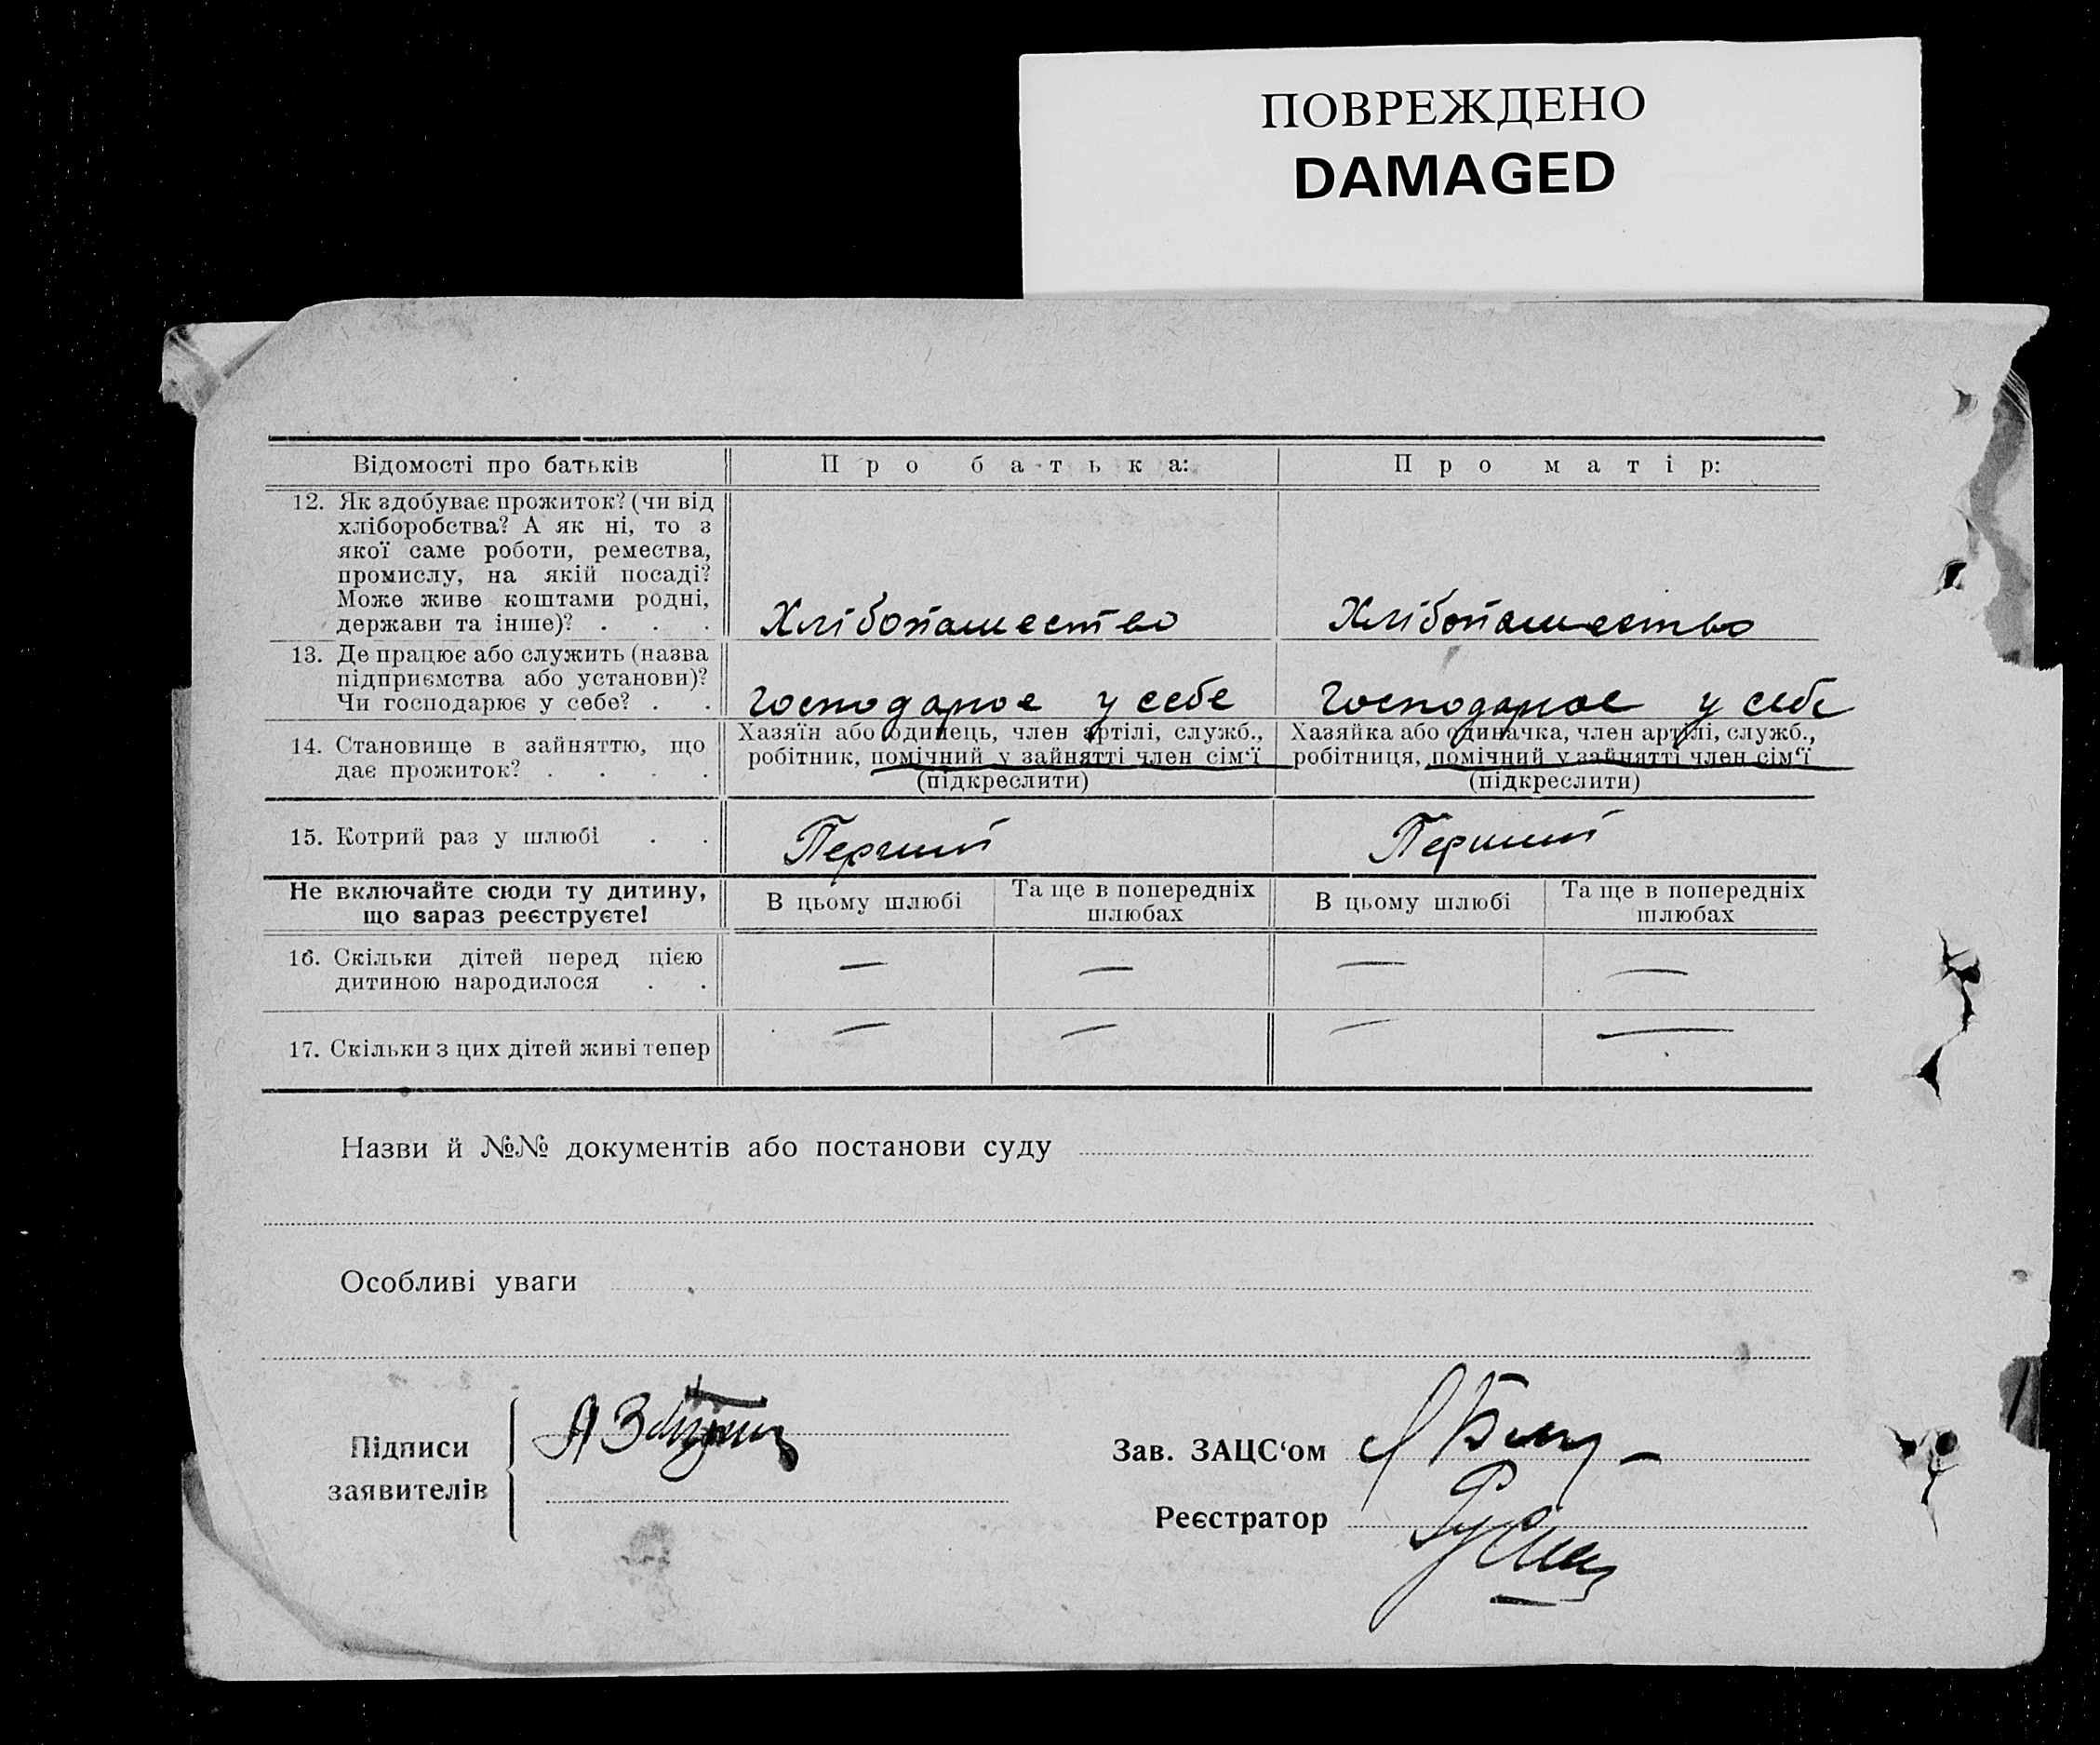 ПОВРЕЖДЕНО
DAMAGED
Відомості про батьків
Про батька:
Про матір:
12. Як здобуває прожиток? (чи від
хліборобства? А як ні, то з
якої саме роботи, ремества,
промислу, на якій посаді?
Може живе коштами родні,
держави та інше)? . . .
Хлібопашество
Хлібопашество
13. Де працює або служить (назва
підприємства або установи)?
Чи господарює у себе? . .
Господарює у себе
Господарює у себе
14. Становище в зайняттю, що
дає прожиток? . . . .
Хазяїн або одинець, член артілі, служб.,
робітник, помічний у зайнятті член сім‘ї
(підкреслити)
Хазяйка або одиначка, член артілі, служб.,
робітниця, помічний у зайнятті член сім‘ї
(підкреслити)
15. Котрий раз у шлюбі . .
Перший
Перший
Не включайте сюди ту дитину,
що зараз реєструєте!
В цьому шлюбі
Та ще в попередніх
шлюбах
В цьому шлюбі
Та ще в попередніх
шлюбах
16. Скільки дітей перед цією
дитиною народилося . .
— — — —
17. Скільки з цих дітей живі тепер
— — — —
Назви й №№ документів або постанови суду
Особливі уваги
Підписи
заявителів
Зав. ЗАЦС‘ом
Реєстратор